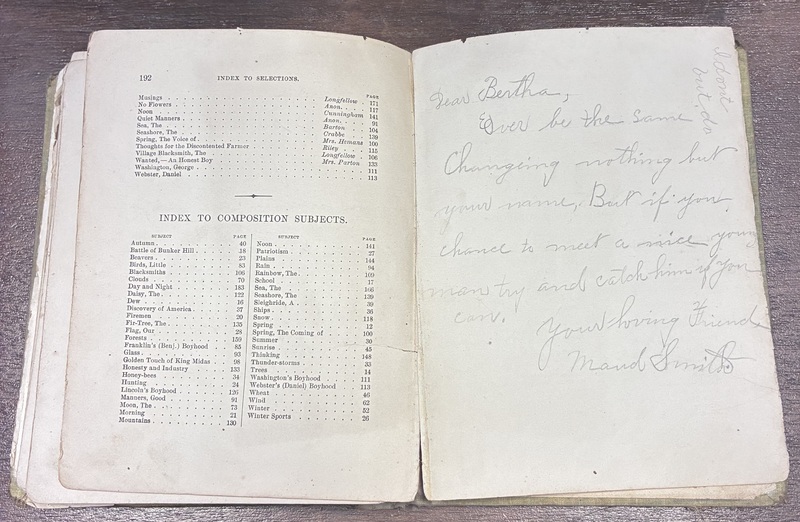 192 INDEX TO SELECTIONS.
PAGE
Musings . . . Longfellow . 171
No Flowers . . . Anon. . 117
Noon . . . Cunningham 141
Quiet Manners . . . Anon. . 91
Sea, The . . . Barton . 104
Seashore, The . . . Crabbe . 139
Spring, The Voice of . . . Mrs. Hemans 100
Thoughts for the Discontented Farmer . . . Riley . 115
Village Blacksmith, The . . . Longfellow . 106
Wanted,—An Honest Boy . . . Mrs. Parton 133
Washington, George . . . 111
Webster, Daniel . . . 113
INDEX TO COMPOSITION SUBJECTS.
SUBJECT PAGE
Autumn . . . 40
Battle of Bunker Hill . . . 18
Beavers . . . 23
Birds, Little . . . 83
Blacksmiths . . . 106
Clouds . . . 70
Day and Night . . . 183
Daisy, The . . . 122
Dew . . . 16
Discovery of America . . . 37
Firemen . . . 20
Fir-Tree, The . . . 135
Flag, Our . . . 28
Forests . . . 159
Franklin's (Benj.) Boyhood . . . 85
Glass . . . 93
Golden Touch of King Midas . . . 98
Honesty and Industry . . . 133
Honey-bees . . . 34
Hunting . . . 24
Lincoln's Boyhood . . . 126
Manners, Good . . . 91
Moon, The . . . 73
Morning . . . 21
Mountains . . . 130
SUBJECT PAGE
Noon . . . 141
Patriotism . . . 27
Plains . . . 144
Rain . . . 94
Rainbow, The . . . 109
School . . . 17
Sea, The . . . 166
Seashore, The . . . 139
Sleighride, A . . . 39
Ships . . . 36
Snow . . . 118
Spring . . . 12
Spring, The Coming of . . . 100
Summer . . . 30
Sunrise . . . 45
Thinking . . . 148
Thunder-storms . . . 33
Trees . . . 14
Washington's Boyhood . . . 111
Webster's (Daniel) Boyhood . . . 113
Wheat . . . 46
Wind . . . 62
Winter . . . 52
Winter Sports . . . 26
Dear Bertha,
Ever be the same
Changeing nothing but
your name, But if you
chance to meet a nice young
man try and catch him if you
can.
Your loving Friend
Maud Smith